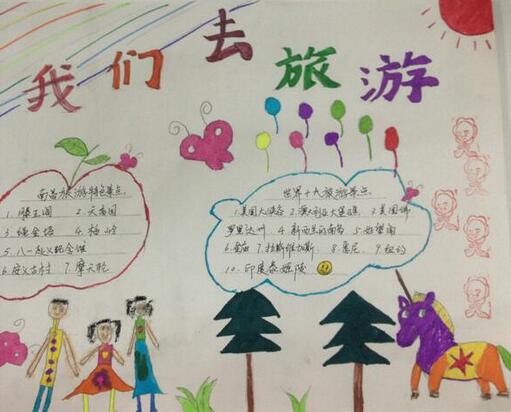 我们去旅游
南昌旅游特色景点
1.滕王阁 2.天香园
3.绳金塔 4.梅岭
5.八一起义纪念馆
6.安义古村 7.摩天轮
世界十大旅游景点
1.美国大峡谷 2.澳大利亚大堡礁 3.美国佛
罗里达州 4.新西兰的南岛 5.好望角
6.金庙 7.拉斯维加斯 8.悉尼 9.纽约
10.印度泰姬陵